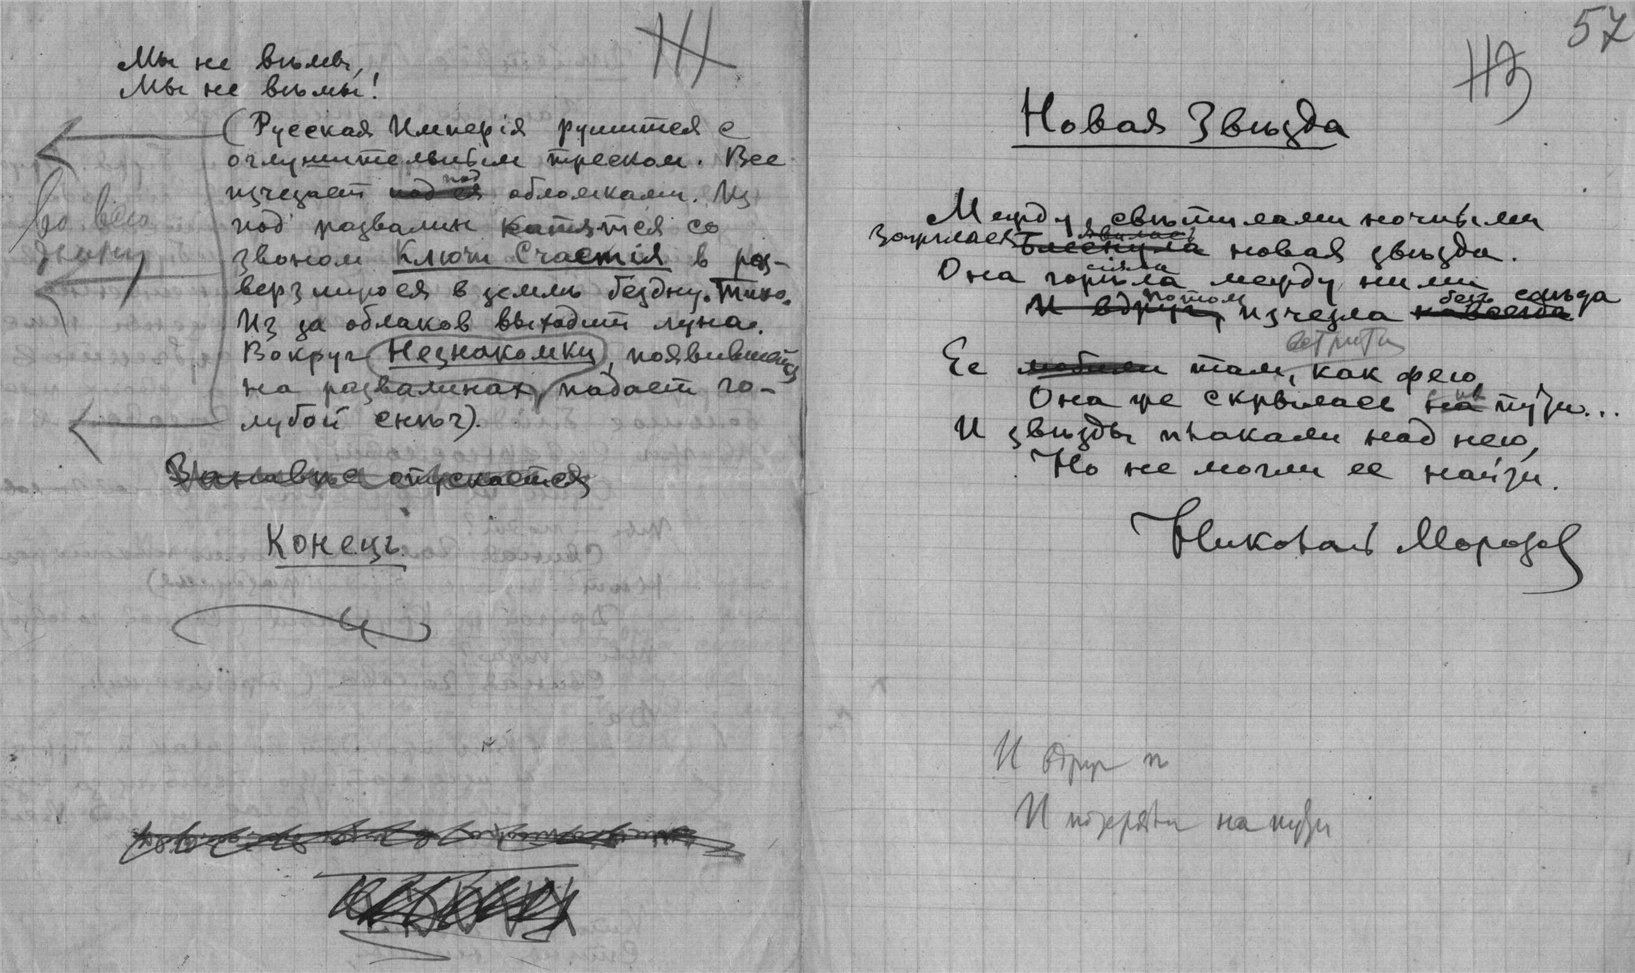 Мы не вѣмы,
Мы не вѣмы!
(Русская Имперія рушится с
оглушительным треском. Все
изчезает под обломками. Из
под развалин катятся со
звоном Ключи Счастія в раз-
верзшуюся в землѣ бездну. Тихо.
Из за облаков выходит луна.
Вокруг Незнакомки, появившейся
на развалинах, падает го-
лубой снѣг).
во всю
ширину
Занавѣс опускается
Конецъ.
57
Новая Звѣзда
Между свѣтилами ночными
Зажглась явилась Блеснула новая звѣзда.
сіяла
Она горѣла между ними
потом безъ слѣда
И вдруг, изчезла навсегда
встрѣти
Ее там, как фею,
Она же скрылась на пути...
И звѣзды плакали над нею,
Но не могли ее найти.
Николай Морозов
И вдруг
И потеряли на пути